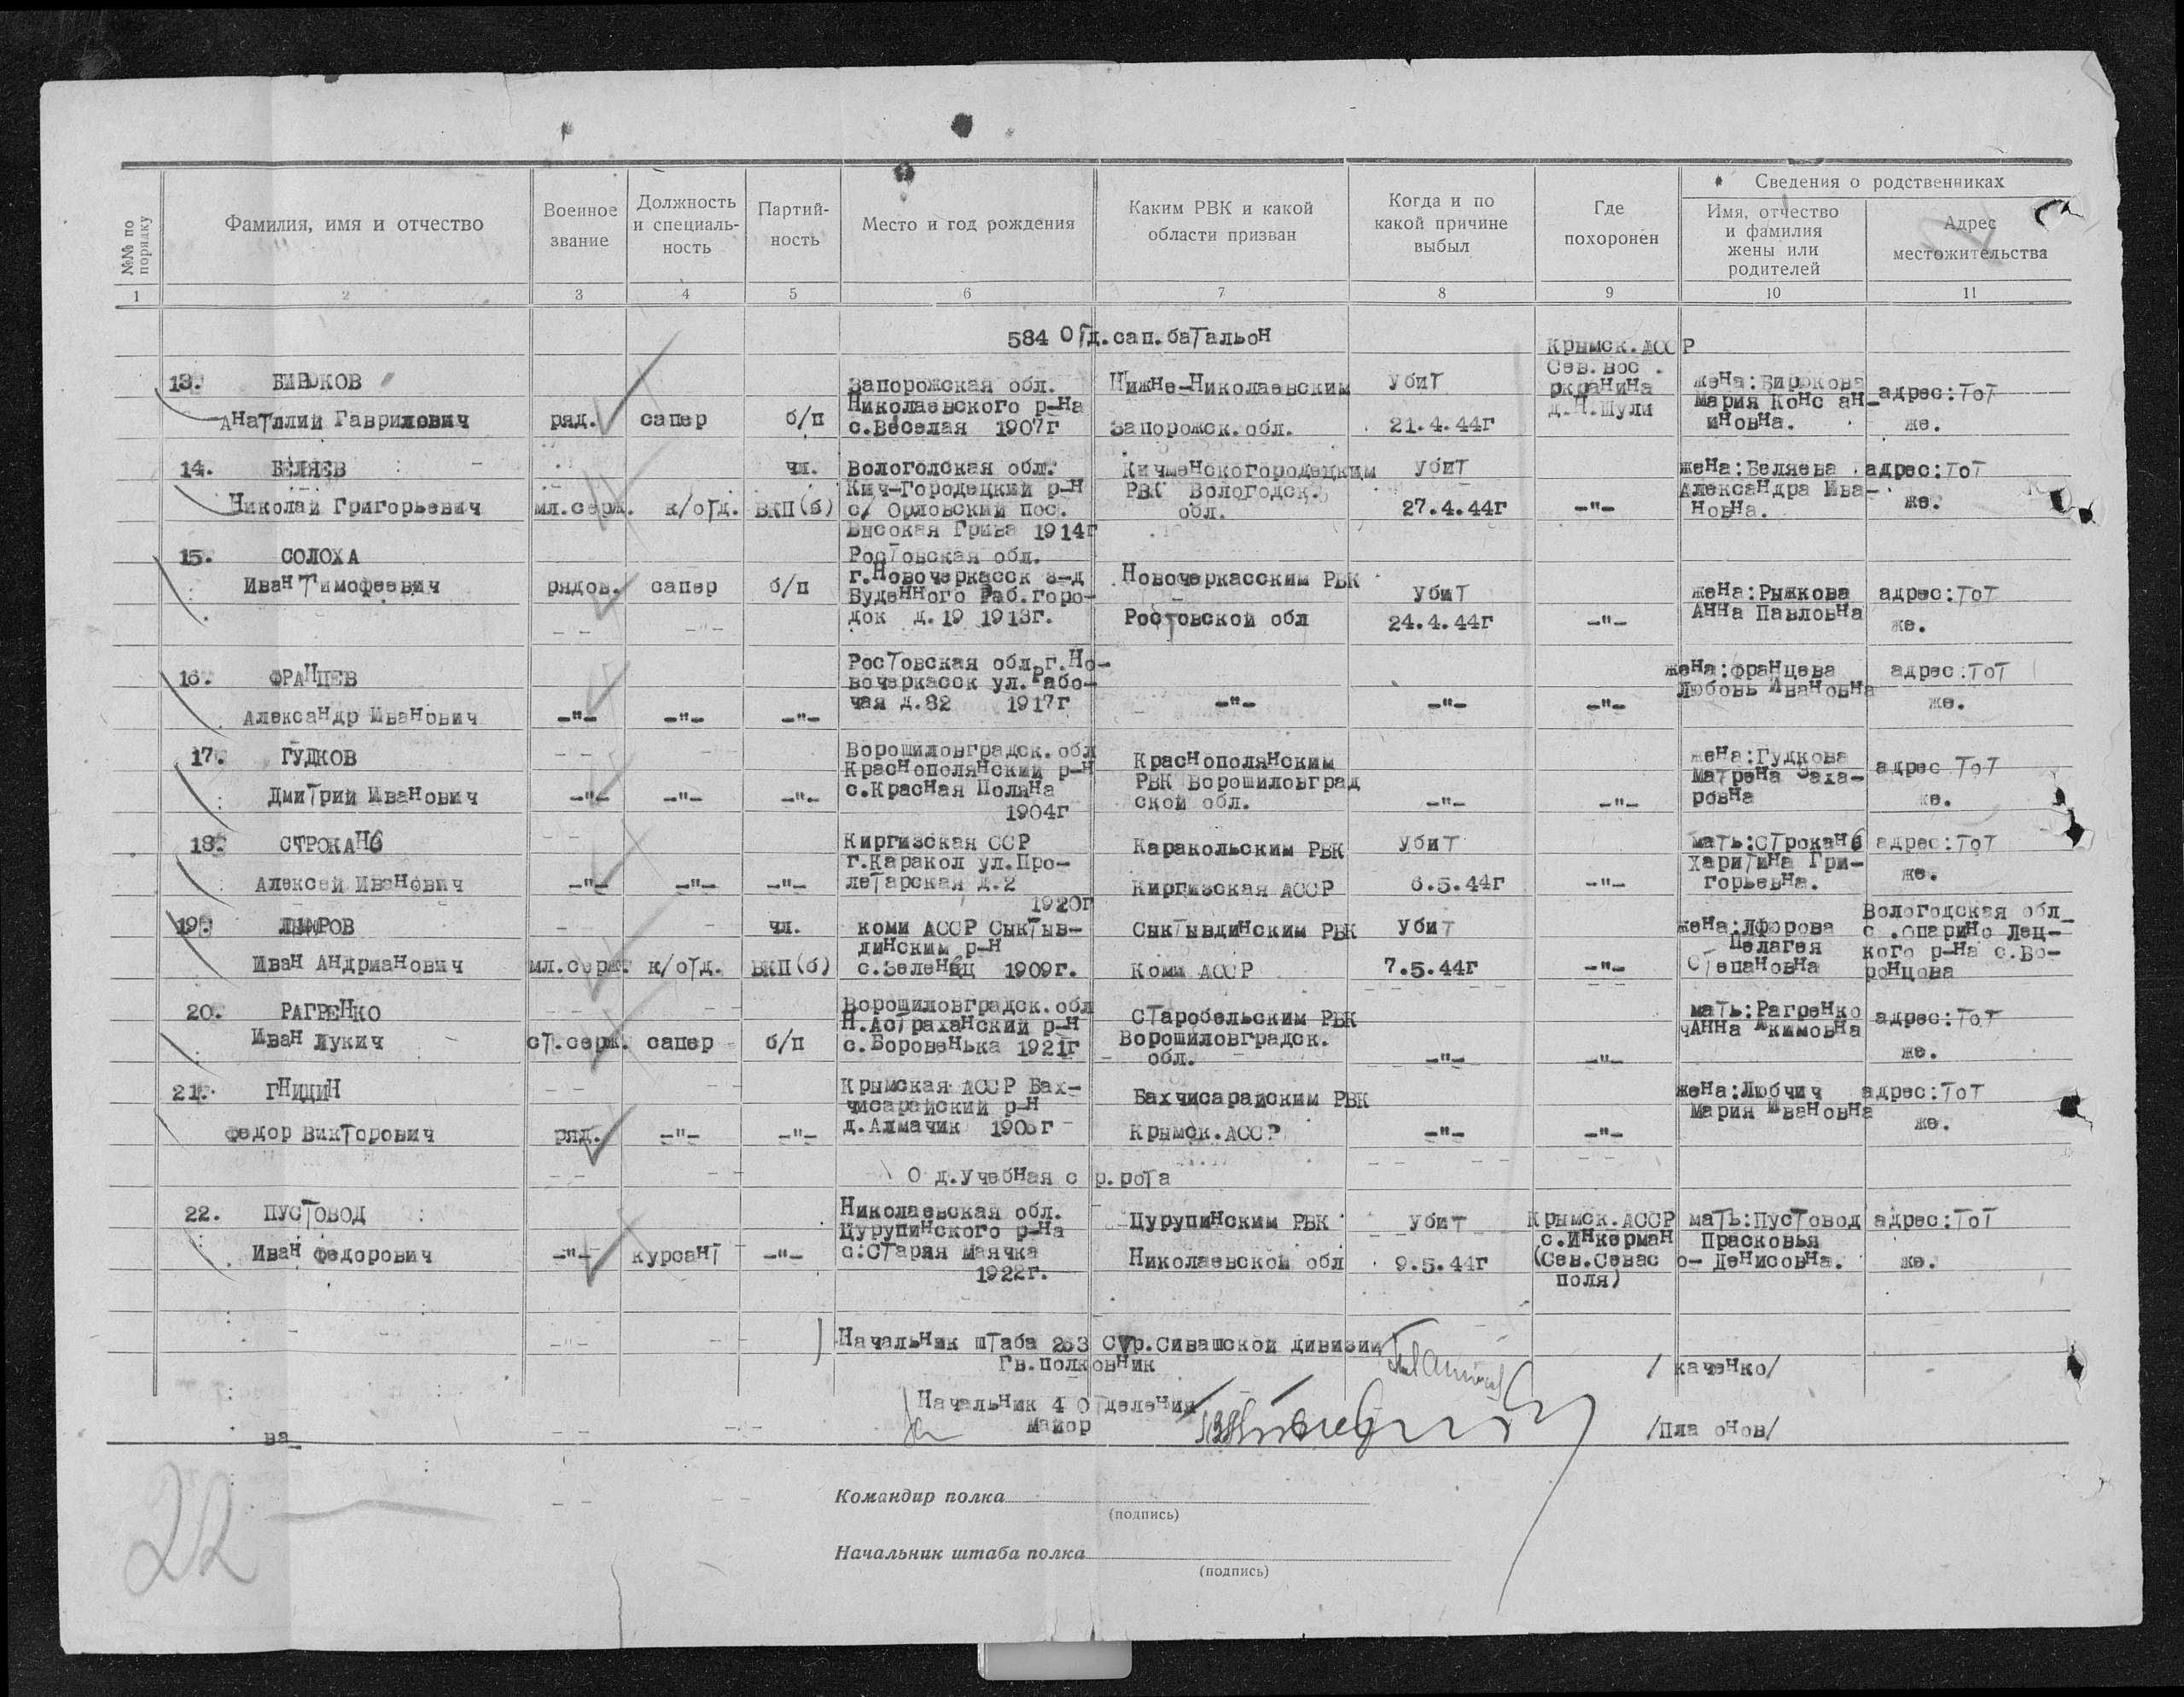 №№ по порядку
Фамилия, имя и отчество
Военное звание
Должность и специаль-ность
Партий-ность
Место и год рождения
Каким РВК и какой области призван
Когда и по какой причине выбыл
Где похоронен
Сведения о родственниках
Имя, отчество и фамилия жены или родителей
Адрес местожительства
1 2 3 4 5 6 7 8 9 10 11
584 Отд.сап.батальон
13. БИРЮКОВ
Анатолий Гаврилович
ряд.
сапер
б/п
Запорожская обл.
Николаевского р-на
с.Веселая 1907г
Нижне-Николаевским
Запорожск.обл.
убит
21.4.44г
Крымск.АССР
Сев.вос .
окранина
д.Н.Шули
жена:Бирюкова
Мария Конс ан-
иновна.
адрес:тот
же.
14. БЕЛЯЕВ
Николай Григорьевич
мл.серж.
к/отд.
чл.
ВКП(б)
Вологодская обл.
Кич-Городецкий р-н
с/ Орловский пос.
Высокая Грива 1914г
Кичменскогородецким
РВК Вологодск.
обл.
убит
27.4.44г
-"-
жена:Беляева
Александра Ива-
новна.
адрес:тот
же.
15. СОЛОХА
Иван Тимофеевич
рядов.
сапер
б/п
Ростовская обл.
г.Новочеркасск з-д
Буденного Раб.горо-
док д.19 1913г.
Новочеркасским РВК
Ростовской обл
убит
24.4.44г
-"-
жена:Рыжкова
Анна Павловна
адрес:тот
же.
16. ФРАНЦЕВ
Александр Иванович
-"-
-"-
-"-
Ростовская обл.г.Но-
вочеркасск ул.Рабо-
чая д.82 1917г
-"-
-"-
-"-
жена:францева
Любовь Ивановна
адрес:тот
же.
17. ГУДКОВ
Дмитрий Иванович
-"-
-"-
-"-
Ворошиловградск.обл
Краснополянский р-н
с.Красная Поляна
1904г
Краснополянским
РВК Ворошиловград
ской обл.
-"-
-"-
жена:Гудкова
Матрена Заха-
ровна
адрес тот
же.
18. СТРОКАНЬ
Алексей Иванович
-"-
-"-
-"-
Киргизская ССР
г.Каракол ул.Про-
летарская д.2
1920г
Каракольским РВК
Киргизская АССР
убит
6.5.44г
-"-
мать:строкань
харитина Гри-
горьевна.
адрес:тот
же.
19.
Иван Андрианович
мл.серж.
к/отд.
чл.
ВКП(б)
коми АССР Сыктыв-
динским р-н
с.Зеленец 1909г.
Сыктывдинским РВК
Коми АССР
убит
7.5.44г
-"-
жена:Лфорова
Пелагея
Степановна
Вологодская обл
с .опарино Лец-
кого р-на с.Во-
ронцова
20. РАГРЕНКО
Иван Лукич
ст.серж.
сапер
б/п
Ворошиловградск.обл
Н.Астраханский р-н
с.Боровенька 1921г
Старобельским РВК
Ворошиловградск.
обл.
-"-
-"-
мать:Рагренко
Анна Акимовна
адрес:тот
же.
21. ГНИДИН
федор Викторович
ряд.
-"-
-"-
Крымская АССР Бах-
чисарайский р-н
д.Алмачик
Бахчисарайским РВК
Крымск.АССР
-"-
-"-
жена:Любчич
Мария Ивановна
адрес:тот
же.
О д.Учебная с р.рота
22. ПУСТОВОД
Иван федорович
-"-
курсант
-"-
Николаевская обл.
Цурупинского р-на
с:Старая Маячка
1922г.
Цурупинским РВК
Николаевской обл
убит
9.5.44г
Крымск.АССР
с.Инкерман
(Сев.Севас о-
поля)
мать:Пустовод
Прасковья
Денисовна.
адрес:тот
же.
Начальник штаба 263 Стр.Сивашской дивизии
Гв.полковник
/ каченко/
Начальник 4 Отделения
майор
/Пла онов/
ва
22
Командир полка
(подпись)
Начальник штаба полка
(подпись)